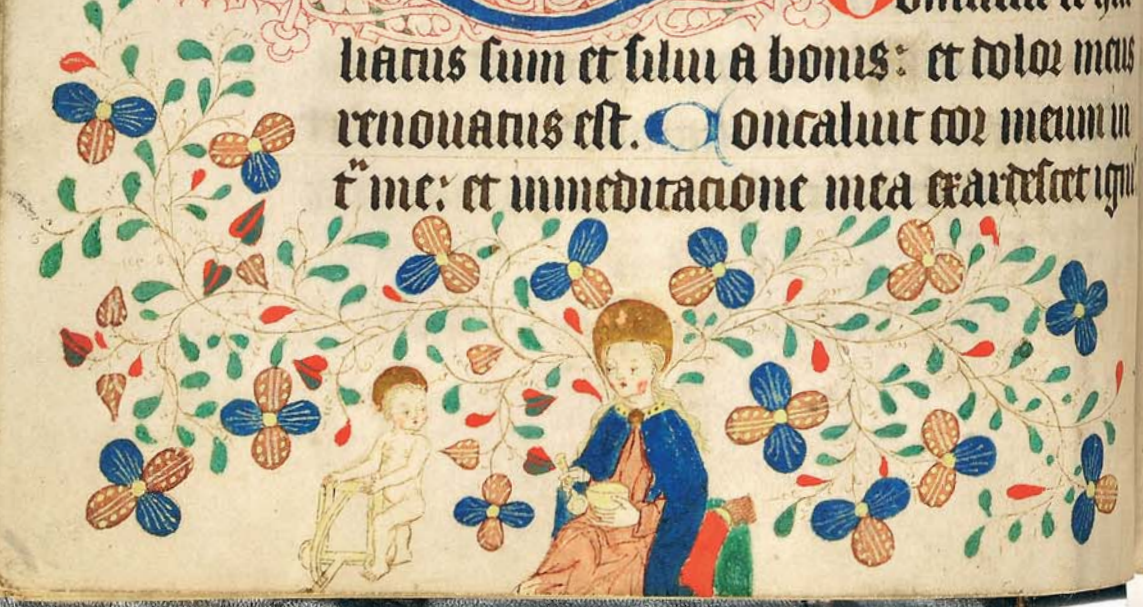 liatus sum et silui a bonis: et dolor meus
renouatus est. Concaluit cor meum in
t̄ me: et in meditacione mea exardescet igni